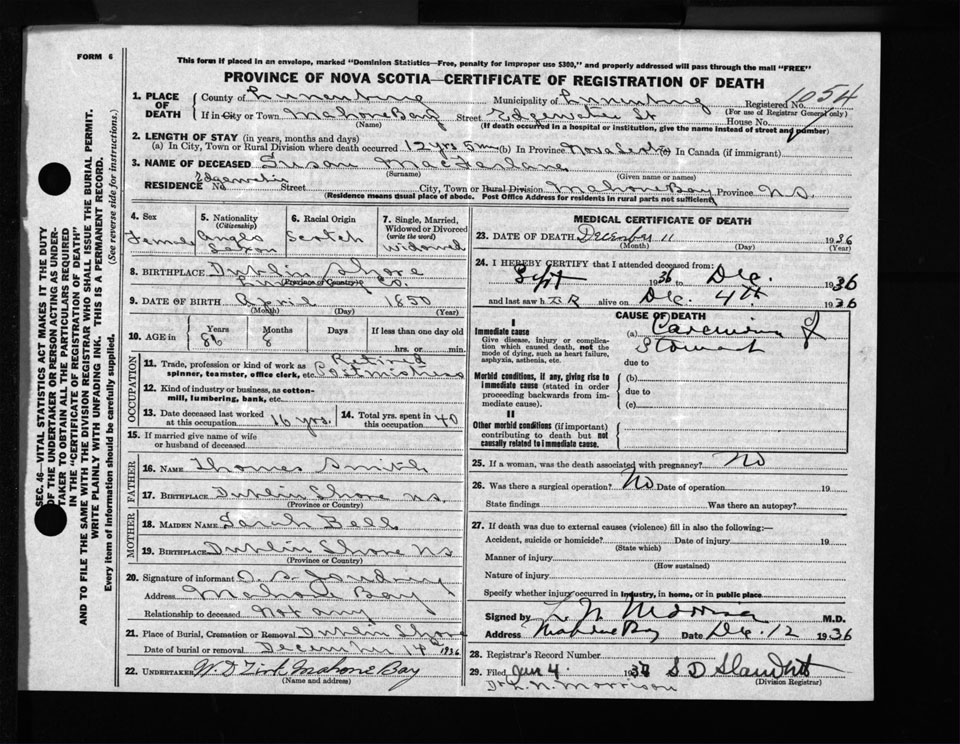 FORM 6
This form if placed in an envelope, marked "Dominion Statistics—Free, penalty for improper use $300," and properly addressed will pass through the mail "FREE"
PROVINCE OF NOVA SCOTIA—CERTIFICATE OF REGISTRATION OF DEATH
1. PLACE OF DEATH
County of Lunenburg Municipality of Lunenburg Registered No. 1054
(For use of Registrar General only)
If in City or Town Mahone Bay Street Edgewater St House No.
(Name) (If death occurred in a hospital or institution, give the name instead of street and number)
2. LENGTH OF STAY (in years, months and days)
(a) In City, Town or Rural Division where death occurred 12 yrs 5 m (b) In Province Nova Scotia (c) In Canada (if immigrant)
3. NAME OF DECEASED Susan MacFarlane
(Surname) (Given name or names)
RESIDENCE No Edgewater Street City, Town or Rural Division Mahone Bay Province N.S.
(Residence means usual place of abode. Post Office Address for residents in rural parts not sufficient)
4. Sex
Female
5. Nationality
(Citizenship)
Anglo Saxon
6. Racial Origin
Scotch
7. Single, Married, Widowed or Divorced
(write the word)
Widowed
8. BIRTHPLACE Dublin Shore
Lun Co.
(Province or Country)
9. DATE OF BIRTH April 1850
(Month) (Day) (Year)
10. AGE in
Years 86
Months 8
Days
If less than one day old
hrs. or min.
OCCUPATION
11. Trade, profession or kind of work as spinner, teamster, office clerk, etc. Retired Postmistress
12. Kind of industry or business, as cotton-mill, lumbering, bank, etc.
13. Date deceased last worked at this occupation 16 yrs.
14. Total yrs. spent in this occupation 40
15. If married give name of wife or husband of deceased
FATHER
16. NAME Thomas Smith
17. BIRTHPLACE Dublin Shore N.S.
(Province or Country)
MOTHER
18. MAIDEN NAME Sarah Bell
19. BIRTHPLACE Dublin Shore N.S
(Province or Country)
20. Signature of informant
Address Mahone Bay
Relationship to deceased Not any
21. Place of Burial, Cremation or Removal Dublin Shore
Date of burial or removal December 14 1936
22. UNDERTAKER W. D Zink Mahone Bay
(Name and address)
MEDICAL CERTIFICATE OF DEATH
23. DATE OF DEATH December 11 1936
(Month) (Day) (Year)
24. I HEREBY CERTIFY that I attended deceased from:
Sept 1936 to Dec. 1936
and last saw h er alive on Dec. 4th 1936
CAUSE OF DEATH
I
Immediate cause
Give disease, injury or complication which caused death, not the mode of dying, such as heart failure, asphyxia, asthenia, etc.
(a) Carcinoma of Stomach
due to
Morbid conditions, if any, giving rise to immediate cause (stated in order proceeding backwards from immediate cause).
(b)
due to
(c)
II
Other morbid conditions (if important) contributing to death but not causally related to immediate cause.
25. If a woman, was the death associated with pregnancy? No
26. Was there a surgical operation? No Date of operation 19
State findings Was there an autopsy?
27. If death was due to external causes (violence) fill in also the following:—
Accident, suicide or homicide? Date of injury 19
(State which)
Manner of injury
(How sustained)
Nature of injury
Specify whether injury occurred in Industry, in home, or in public place
Signed by L N Morrison M.D.
Address Mahone Bay Date Dec. 12 1936
28. Registrar's Record Number
29. Filed Jan 4 1937
(Division Registrar)
Dr. L. N. Morrison
SEC. 46—VITAL STATISTICS ACT MAKES IT THE DUTY
OF THE UNDERTAKER OR PERSON ACTING AS UNDER-
TAKER TO OBTAIN ALL THE PARTICULARS REQUIRED
IN THE "CERTIFICATE OF REGISTRATION OF DEATH"
AND TO FILE THE SAME WITH THE DIVISION REGISTRAR WHO SHALL ISSUE THE BURIAL PERMIT.
WRITE PLAINLY WITH UNFADING INK. THIS IS A PERMANENT RECORD.
Every item of information should be carefully supplied. (See reverse side for instructions.)